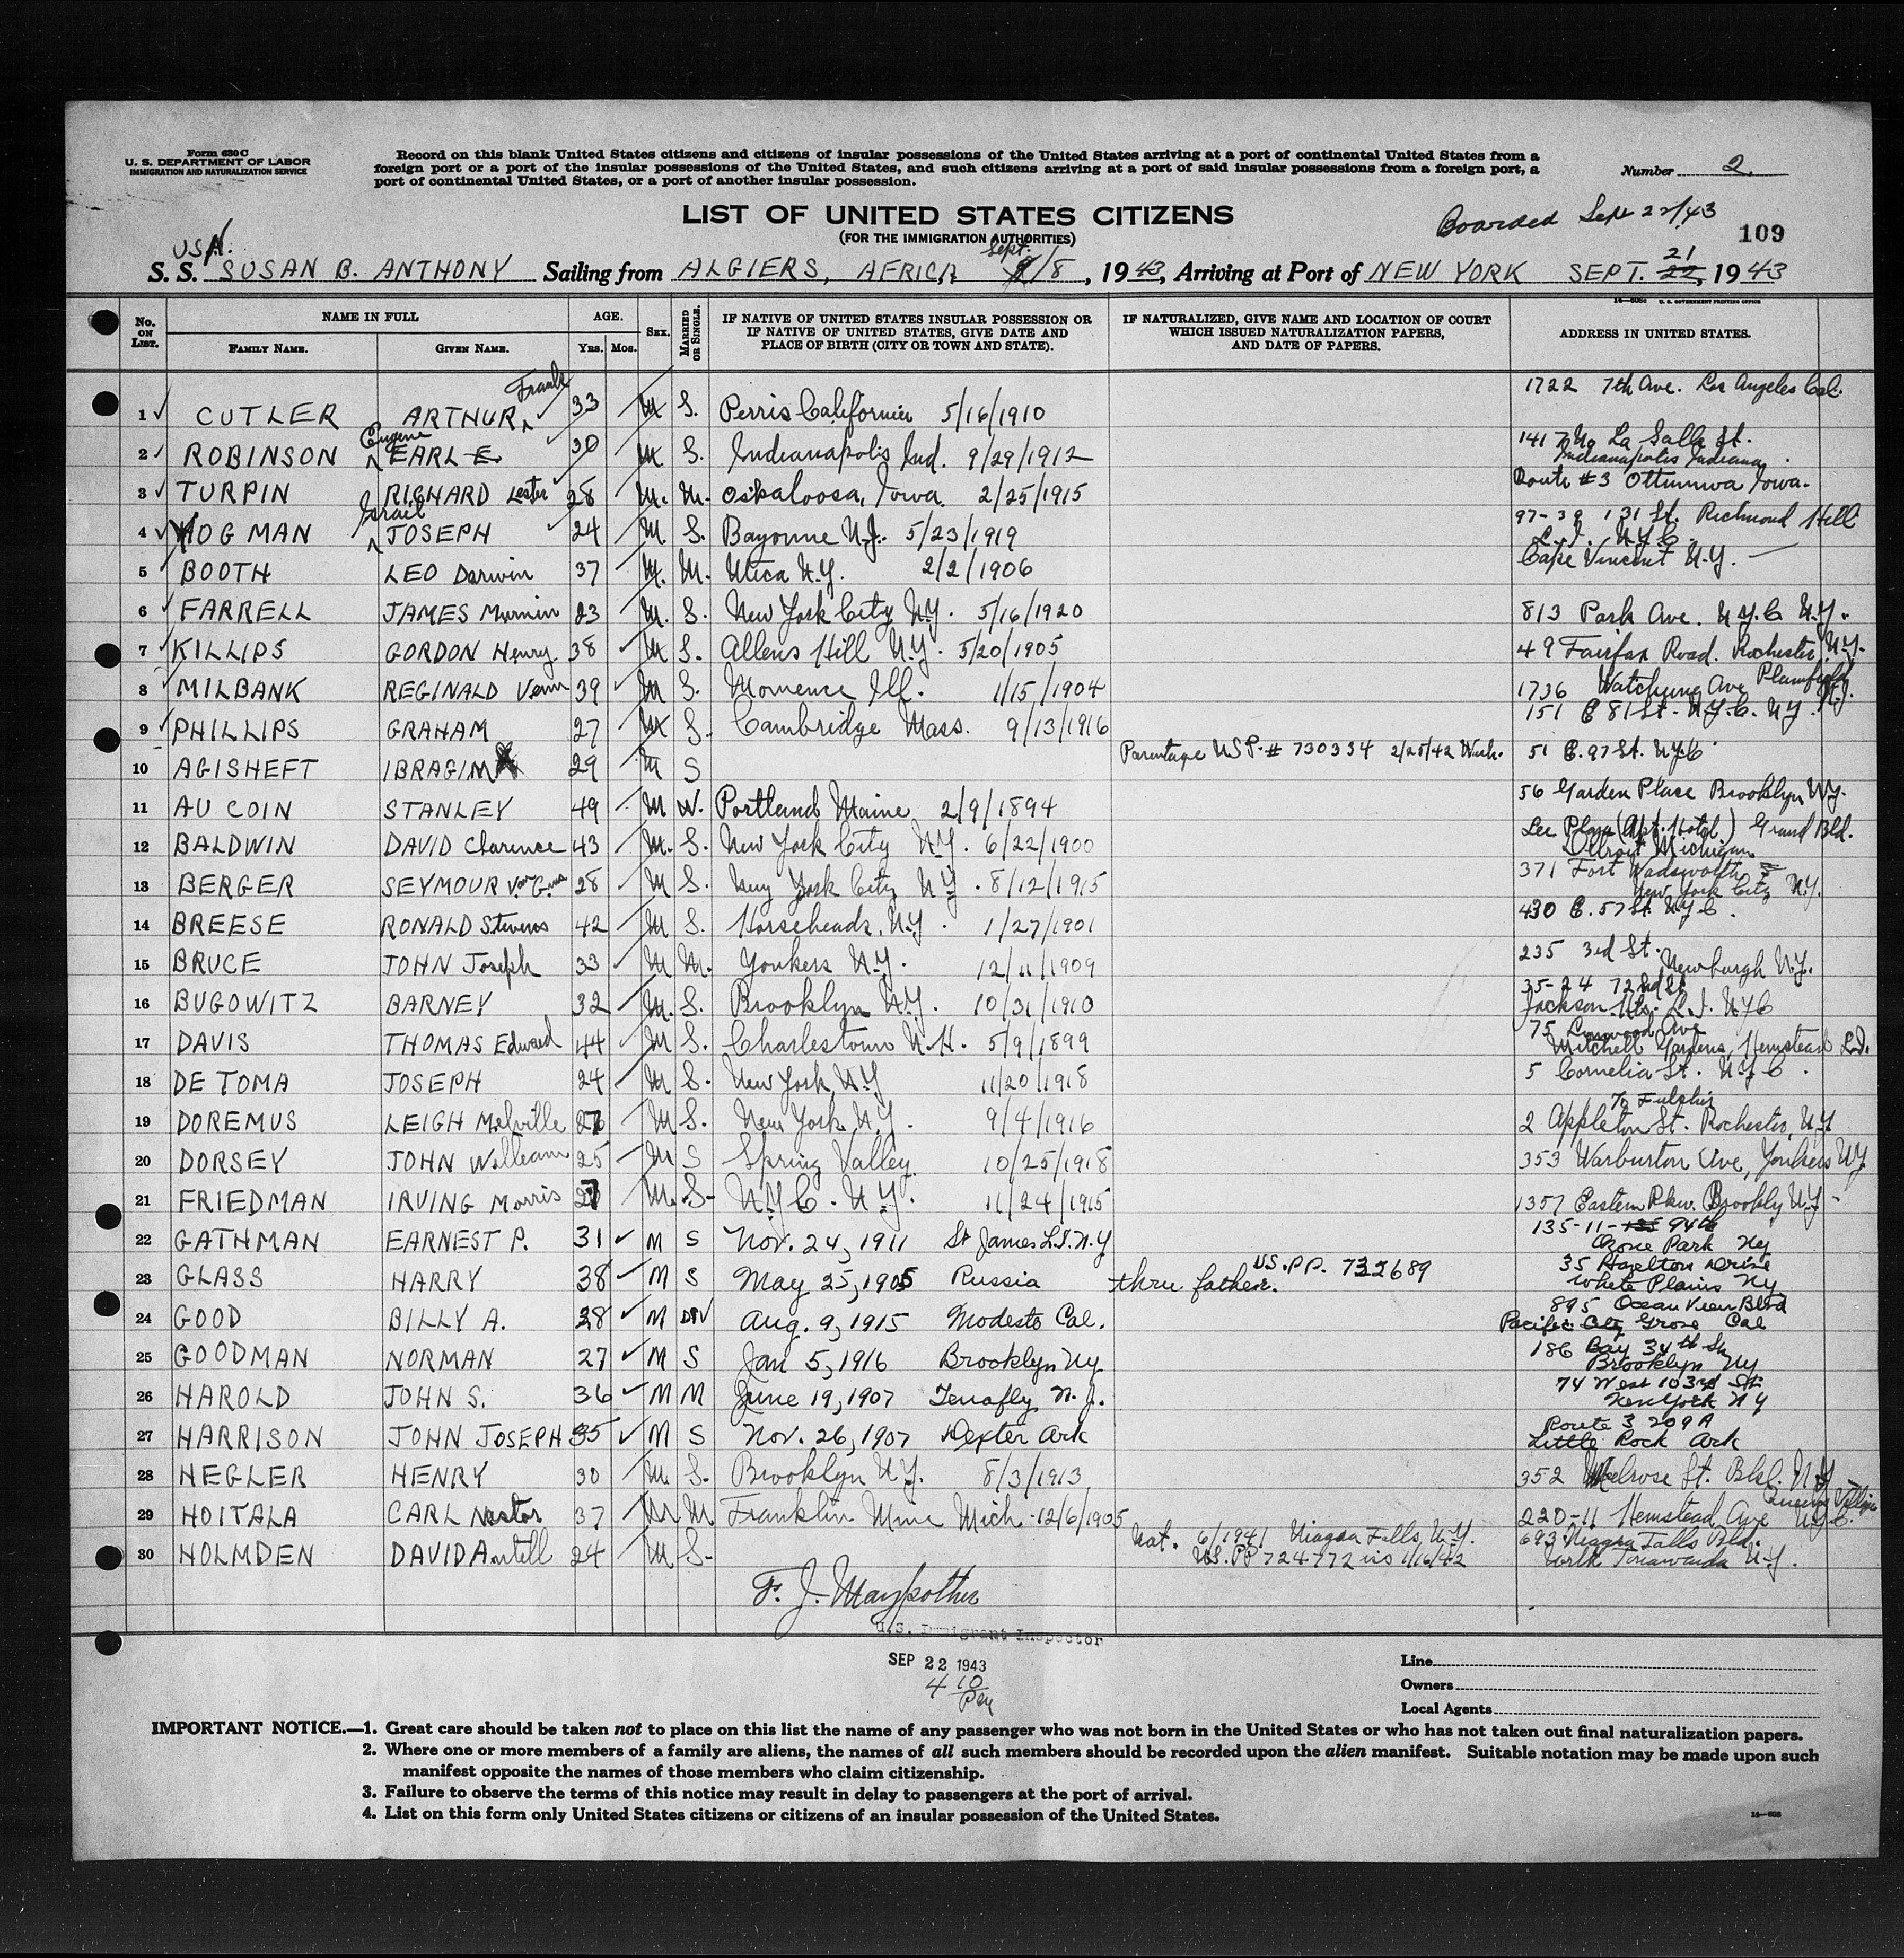 Form 630 C
U. S. DEPARTMENT OF LABOR
IMMIGRATION AND NATURALIZATION SERVICE
Record on this blank United States citizens and citizens of insular possessions of the United States arriving at a port of continental United States from a
foreign port or a port of the insular possessions of the United States, and such citizens arriving at a port of said insular possessions from a foreign port, a
port of continental United States, or a port of another insular possession.
Number 2
LIST OF UNITED STATES CITIZENS
(FOR THE IMMIGRATION AUTHORITIES)
Boarded Sept 22/43
109
USN.
S. S. SUSAN B. ANTHONY Sailing from ALGIERS, AFRICA Sept. /8, 1943, Arriving at Port of NEW YORK SEPT. 21 22, 1943
16—5083 U. S. GOVERNMENT PRINTING OFFICE
No. ON LIST. NAME IN FULL AGE. SEX. MARRIED OR SINGLE. IF NATIVE OF UNITED STATES INSULAR POSSESSION OR IF NATIVE OF UNITED STATES, GIVE DATE AND PLACE OF BIRTH (CITY OR TOWN AND STATE). IF NATURALIZED, GIVE NAME AND LOCATION OF COURT WHICH ISSUED NATURALIZATION PAPERS, AND DATE OF PAPERS. ADDRESS IN UNITED STATES.
FAMILY NAME. GIVEN NAME. Yrs. Mos.
1 CUTLER ARTHUR Frank 33 M S. Perris California 5/16/1910 1722 7th Ave. Los Angeles Cal.
2 ROBINSON Eugene EARL E. 30 M. S. Indianapolis Ind. 9/29/1912 1417 No La Salle St. Indianapolis Indiana
3 TURPIN RICHARD Lester 28 M. M. Oskaloosa, Iowa. 2/25/1915 Route #3 Ottumwa Iowa.
4 HOGMAN Israil JOSEPH 24 M. S. Bayonne N.J. 5/23/1919 97-39 131 St. Richmond Hill L.I. N.Y.C.
5 BOOTH LEO Darwin 37 M. M. Utica N.Y. 2/2/1906 Cape Vincent N.Y.
6 FARRELL JAMES Murnin 23 M. S. New York City N.Y. 5/16/1920 813 Park Ave. N.Y.C N.Y.
7 KILLIPS GORDON Henry 38 M S. Allens Hill N.Y. 5/20/1905 49 Fairfax Road. Rochester N.Y.
8 MILBANK REGINALD Venn 39 M S. Momence Ill. 1/15/1904 1736 Watchung Ave Plainfield N.J.
9 PHILLIPS GRAHAM 27 M S. Cambridge Mass. 9/13/1916 151 E 81 St. N.Y.C. N.Y.
10 AGISHEFT IBRAGIM 29 M S Parentage US P. # 730334 2/25/42 Wash. 51 E. 97 St. NYC
11 AU COIN STANLEY 49 M W. Portland Maine 2/9/1894 56 Garden Place Brooklyn NY.
12 BALDWIN DAVID Clarence 43 M. S. New York City N.Y. 6/22/1900 Lee Plaza (Apt. Hotel) Grand Bld. Detroit Michigan
13 BERGER SEYMOUR 28 M S. New York City N.Y. 8/12/1915 371 Fort Wadsworth New York City N.Y.
14 BREESE RONALD Stevens 42 M S. Horseheads, N.Y. 1/27/1901 430 E. 57 St. N.Y.C.
15 BRUCE JOHN Joseph 33 M M. Yonkers N.Y. 12/11/1909 235 3rd St. Newburgh N.Y.
16 BUGOWITZ BARNEY 32 M. S. Brooklyn N.Y. 10/31/1910 35-24 72nd St Jackson Hts. L.I. NYC
17 DAVIS THOMAS Edward 44 M S. Charlestown N.H. 5/9/1899 75 Linwood Ave Mitchell Gardens, Hemstead L.I.
18 DE TOMA JOSEPH 24 M S. New York N.Y 11/20/1918 5 Cornelia St. N.Y.C.
19 DOREMUS LEIGH Melville 27 M S. New York N.Y. 9/4/1916 2 Appleton St. Rochester, N.Y
20 DORSEY JOHN William 25 M S Spring Valley 10/25/1918 353 Warburton Ave, Yonkers NY
21 FRIEDMAN IRVING Morris 27 M. S. N.Y.C. N.Y. 11/24/1915 1357 Eastern Pkw. Brookly N.Y.
22 GATHMAN EARNEST P. 31 M S Nov. 24, 1911 St James L.I. N.Y 135-11- 135 94th Ozone Park Ny
23 GLASS HARRY 38 M S May 25, 1905 Russia thru father. US. PP. 732689 35 Hazelton Drive White Plains Ny
24 GOOD BILLY A. 28 M DIV Aug. 9, 1915 Modesto Cal. 895 Ocean View Blvd Pacific City Grove Cal
25 GOODMAN NORMAN 27 M S Jan 5, 1916 Brooklyn Ny 186 Bay 34th St Brooklyn Ny
26 HAROLD JOHN S. 36 M M June 19, 1907 Tenafly N.J. 74 West 103rd St. New York N Y
27 HARRISON JOHN JOSEPH 35 M S Nov. 26, 1907 Dexter Ark Route 3 209A Little Rock Ark
28 HEGLER HENRY 30 M. S. Brooklyn N.Y. 8/3/1913 352 Melrose St. Bkl. N.Y
29 HOITALA CARL Nestor 37 M M Franklin Mine Mich. 12/6/1905 220-11 Hemstead Ave Queens Village N.Y.C.
30 HOLMDEN DAVID Antell 24 M. S. Nat. 6/1941 Niagara Falls N.Y. US. PP 724772 iss 1/16/42 693 Niagra Falls Bld. North Tonawanda N.Y.
F. J. Maypother
U.S. Immigrant Inspector
SEP 22 1943
4 10
Line
Owners
Local Agents
IMPORTANT NOTICE.—1. Great care should be taken not to place on this list the name of any passenger who was not born in the United States or who has not taken out final naturalization papers.
2. Where one or more members of a family are aliens, the names of all such members should be recorded upon the alien manifest. Suitable notation may be made upon such
manifest opposite the names of those members who claim citizenship.
3. Failure to observe the terms of this notice may result in delay to passengers at the port of arrival.
4. List on this form only United States citizens or citizens of an insular possession of the United States.